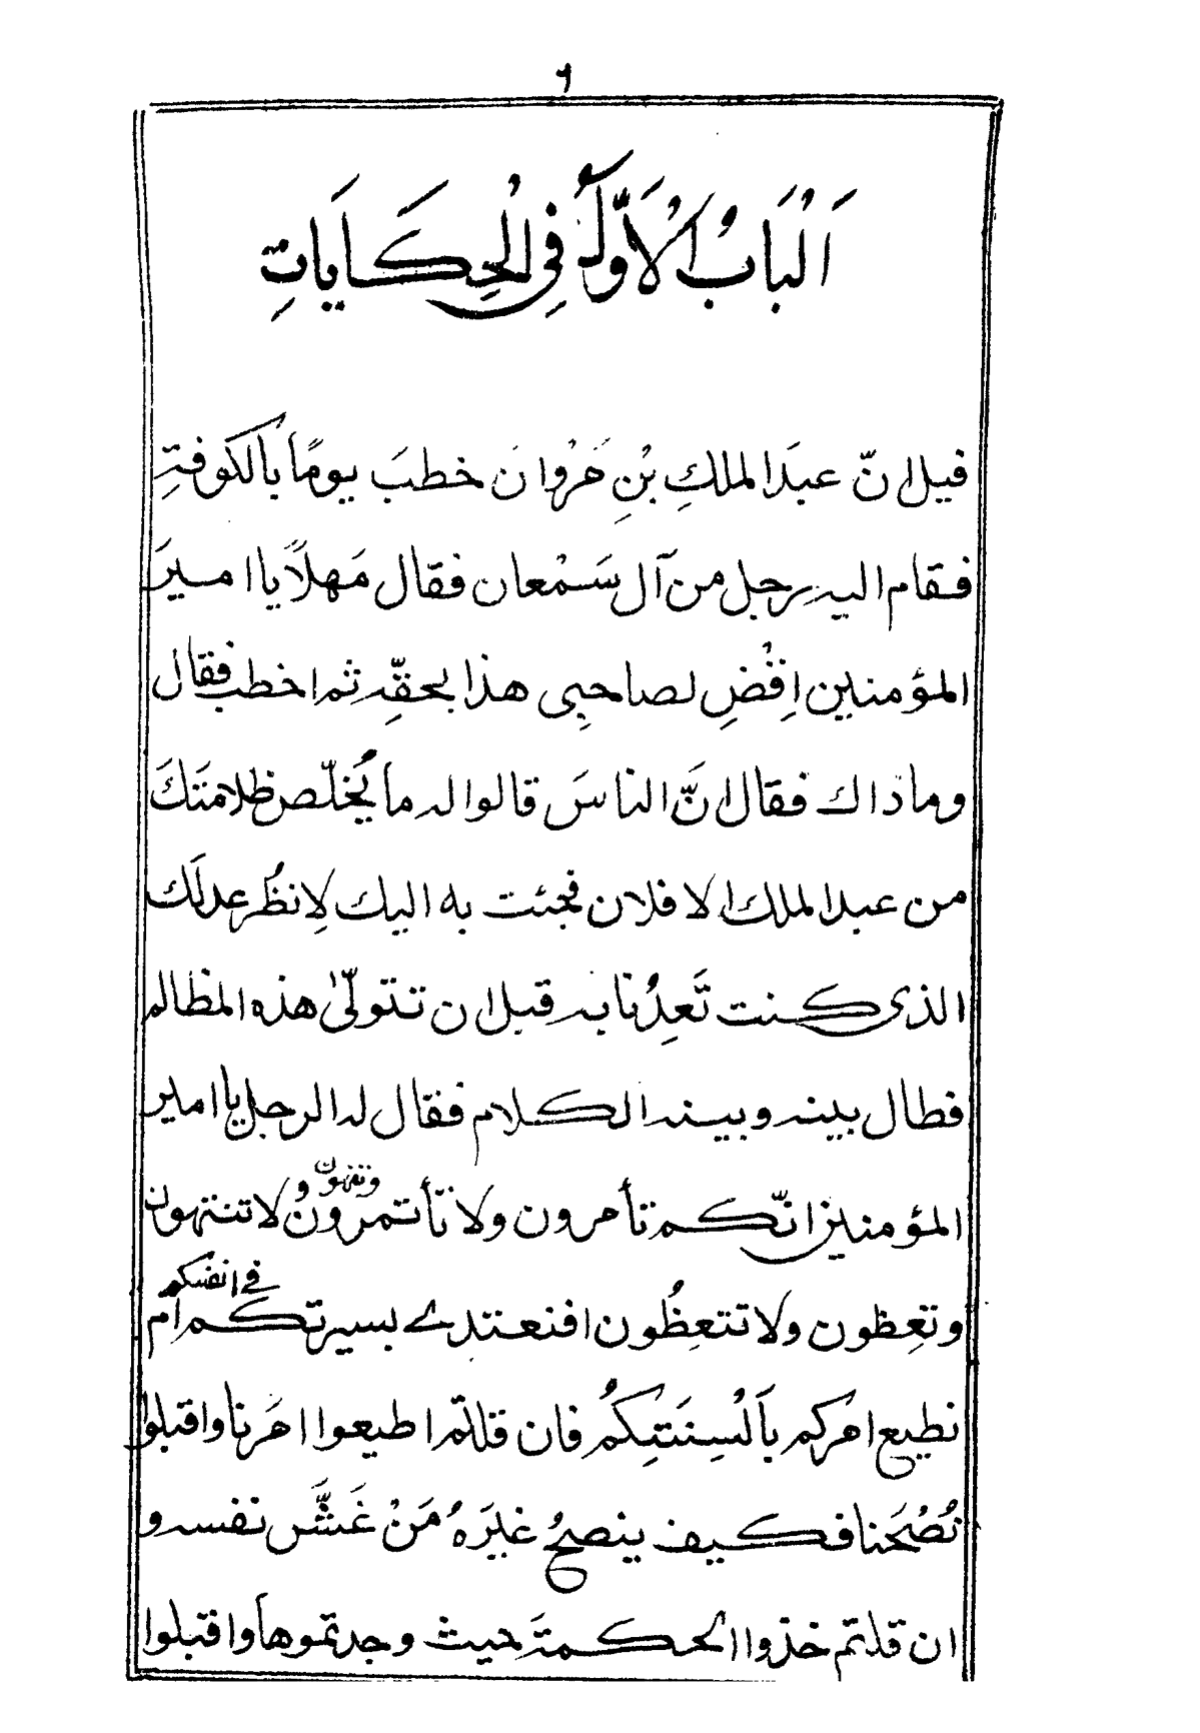 ٦
اَلْبَابُ الْاَوَّلُ فِى الْحِكَايَاتِ
قيل انّ عبدَ الملكِ بْنِ مَرْوانَ خطبَ يومًا بالكوفتِ
فقام اليه رجل من آل سَمْعان فقال مَهلاً يا اميرَ
المؤمنين اِقْضِ لصاحبِى هذا بحقِّه ثم اخطب فقال
وما ذاك فقال انَّ الناسَ قالوا له ما يُخلّص ظلامتَكَ
من عبد الملك الا فلان فجئت به اليك لِانظُر عدلَك
الذى كنت تَعِدُنا به قبل ان تتولّىٰ هذه المظالم
فطال بينه وبينه الكلام فقال له الرجل يا امير
المؤمنين انّكم تأمرون ولا تأتمرون وتنهون ولا تنتهون
وتعِظون ولا تتعِظُون افنعتدى بسيرتكم فى انفسكم ام
نطيع امركم بِاَلْسِنَتِكُم فان قلتم اطيعوا امَرنا واقبلوا
نُصْحَنا فكيف ينصحُ غيَرهُ مَنْ غَشَّ نفسه و
ان قلتم خذوا الحكمتَ حيث وجدتموها واقبلوا